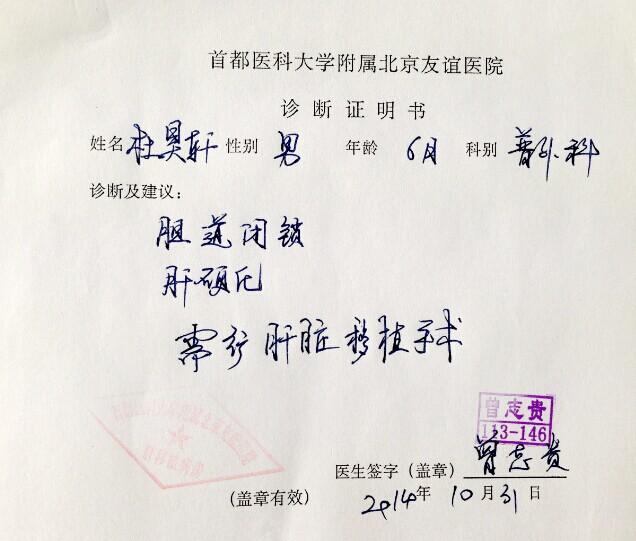 首都医科大学附属北京友谊医院
诊断证明书
姓名 杜昊轩 性别 男 年龄 6月 科别 普外科
诊断及建议:
胆道闭锁
肝硬化
需行肝脏移植手术
曾志贵
113-146
医生签字(盖章) 曾志贵
(盖章有效) 2014年10月31日